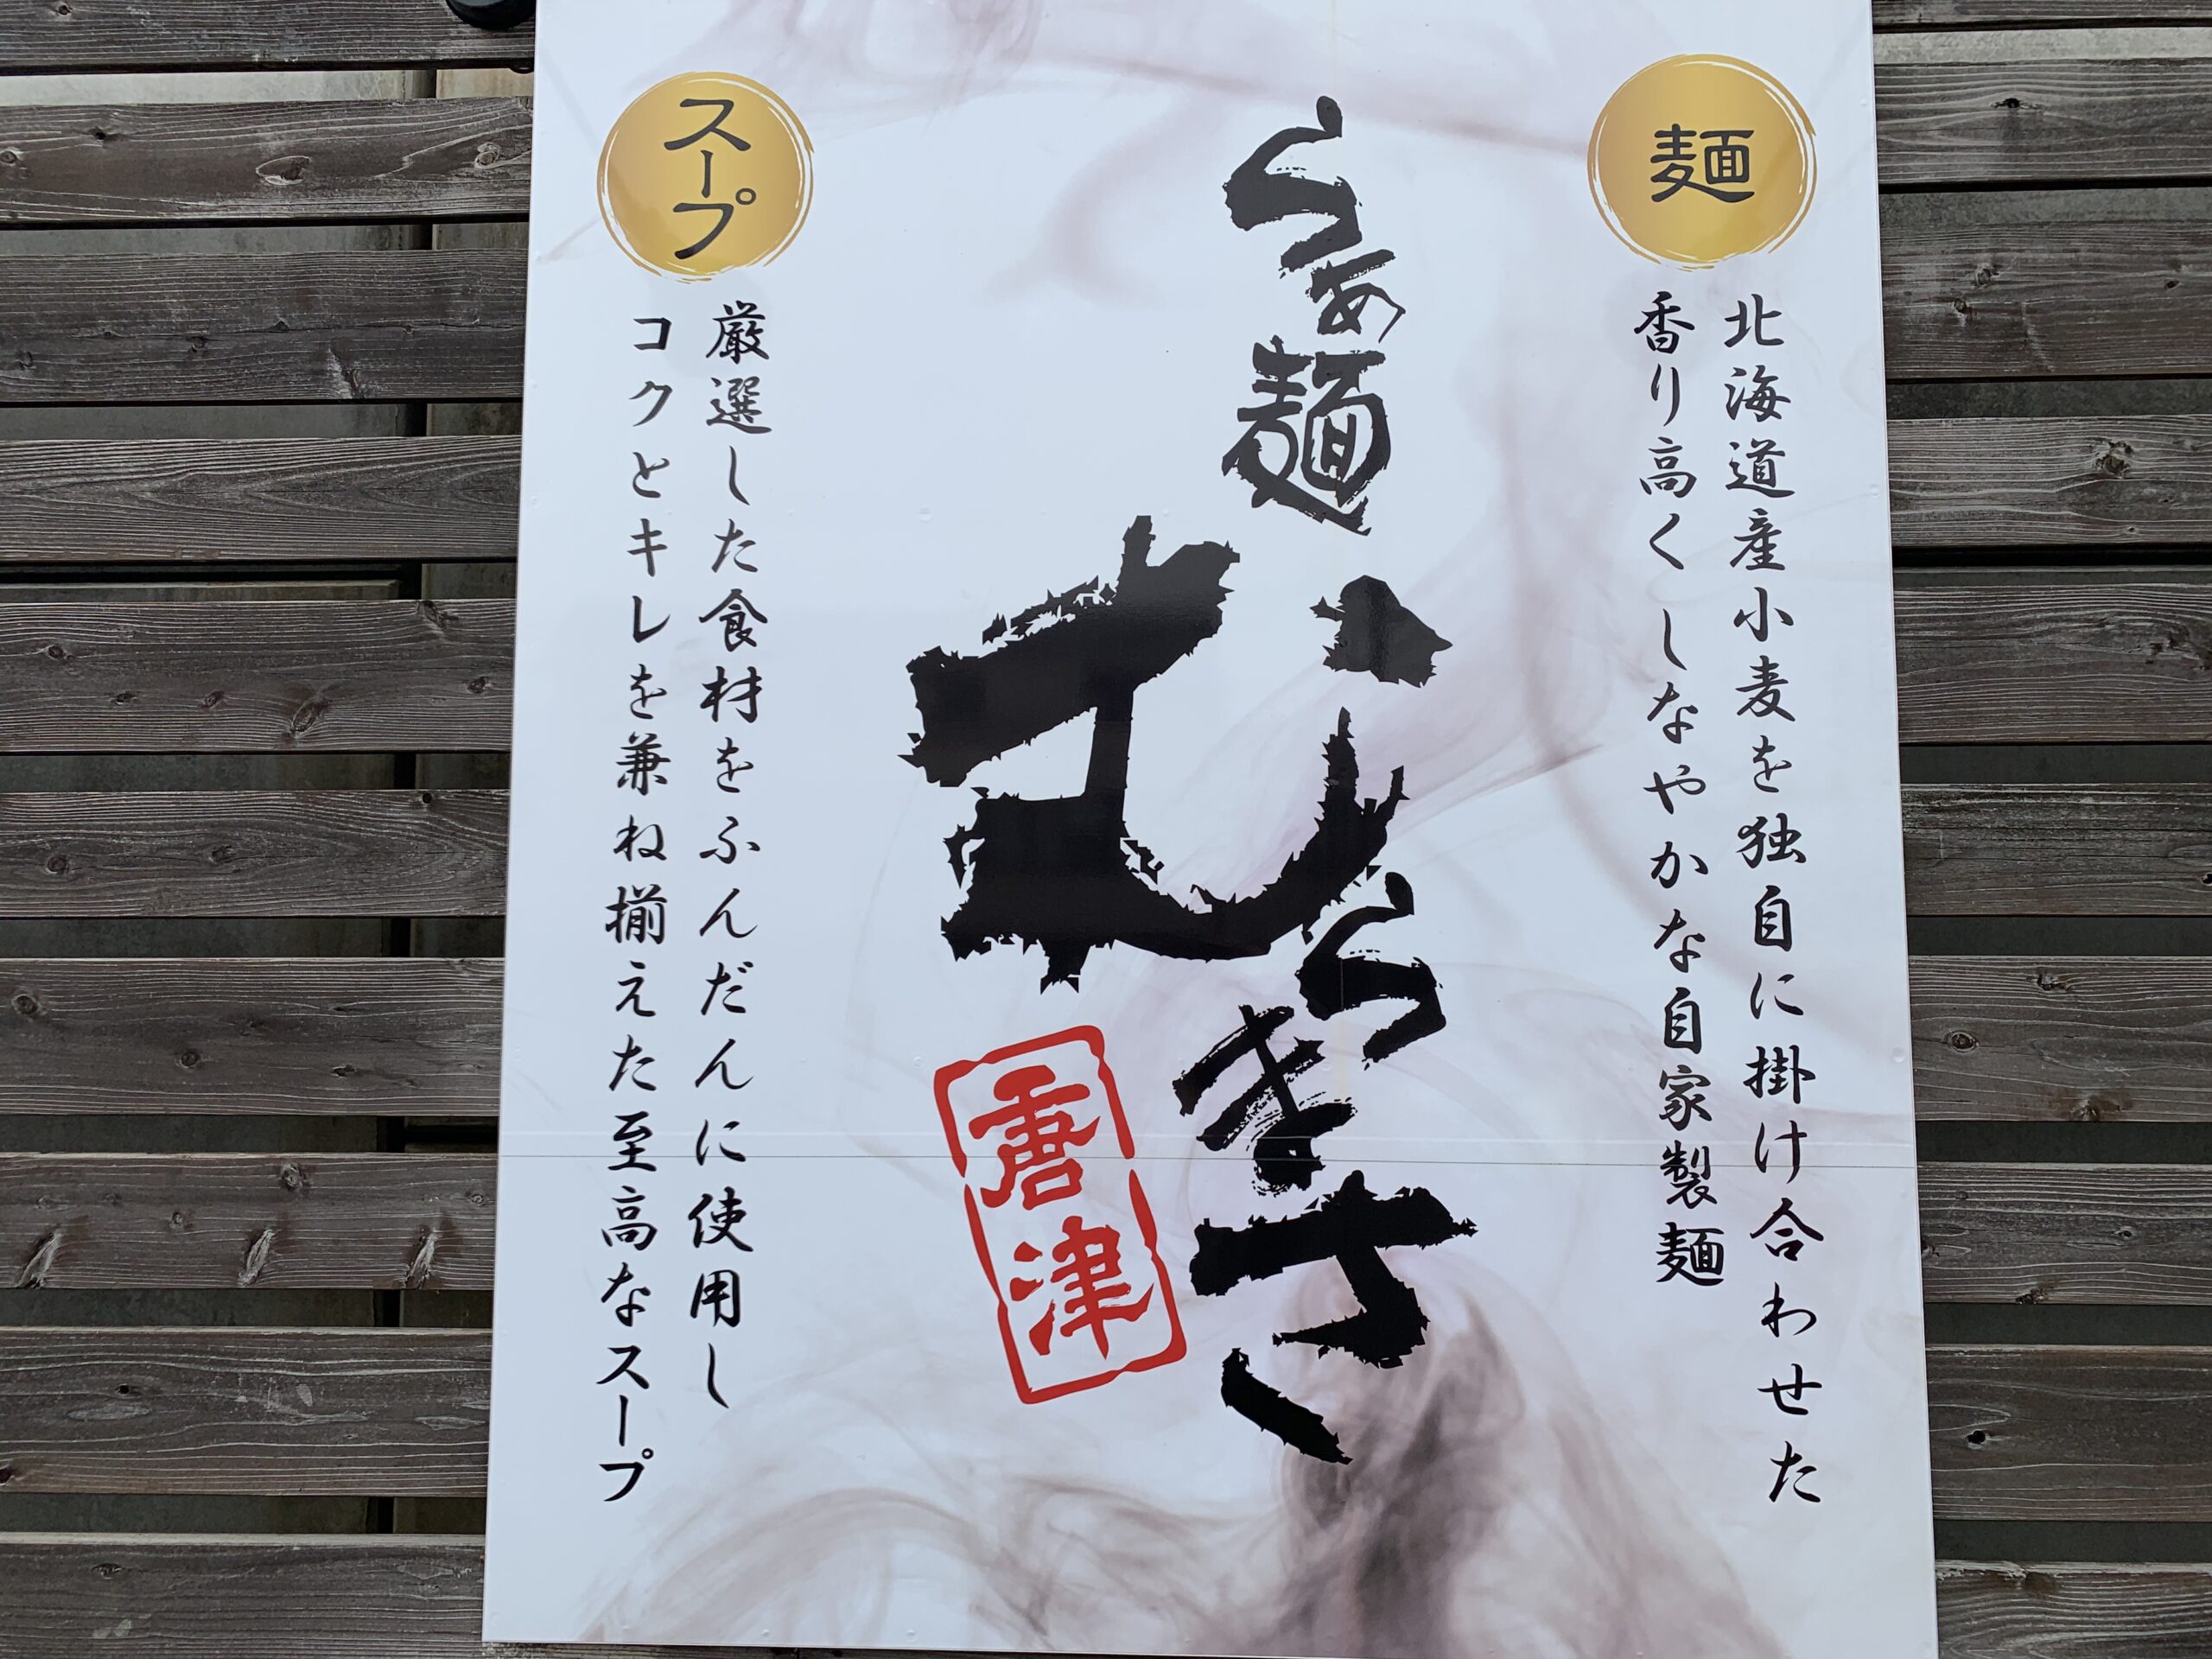 麺
北海道産小麦を独自に掛け合わせた
香り高くしなやかな自家製麺
らぁ麺
むらまさ
唐津
スープ
厳選した食材をふんだんに使用し
コクとキレを兼ね揃えた至高なスープ